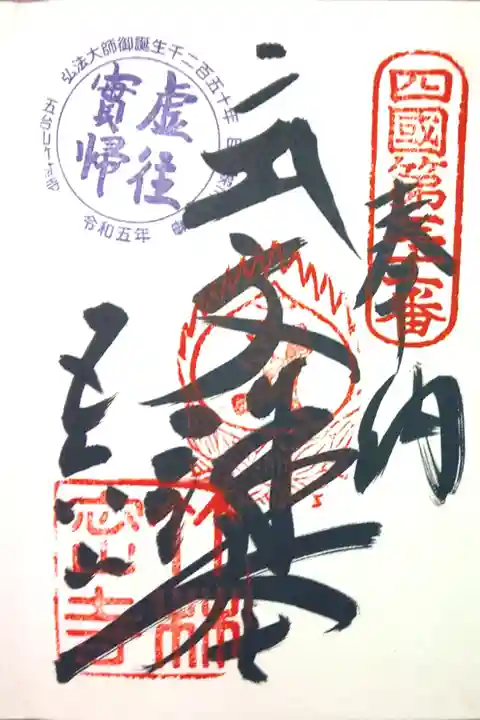 四國第三十一番
奉納
文殊
五台山
竹林
密寺
弘法大師御誕生千二百五十年
虚往
實帰
令和五年
五台山